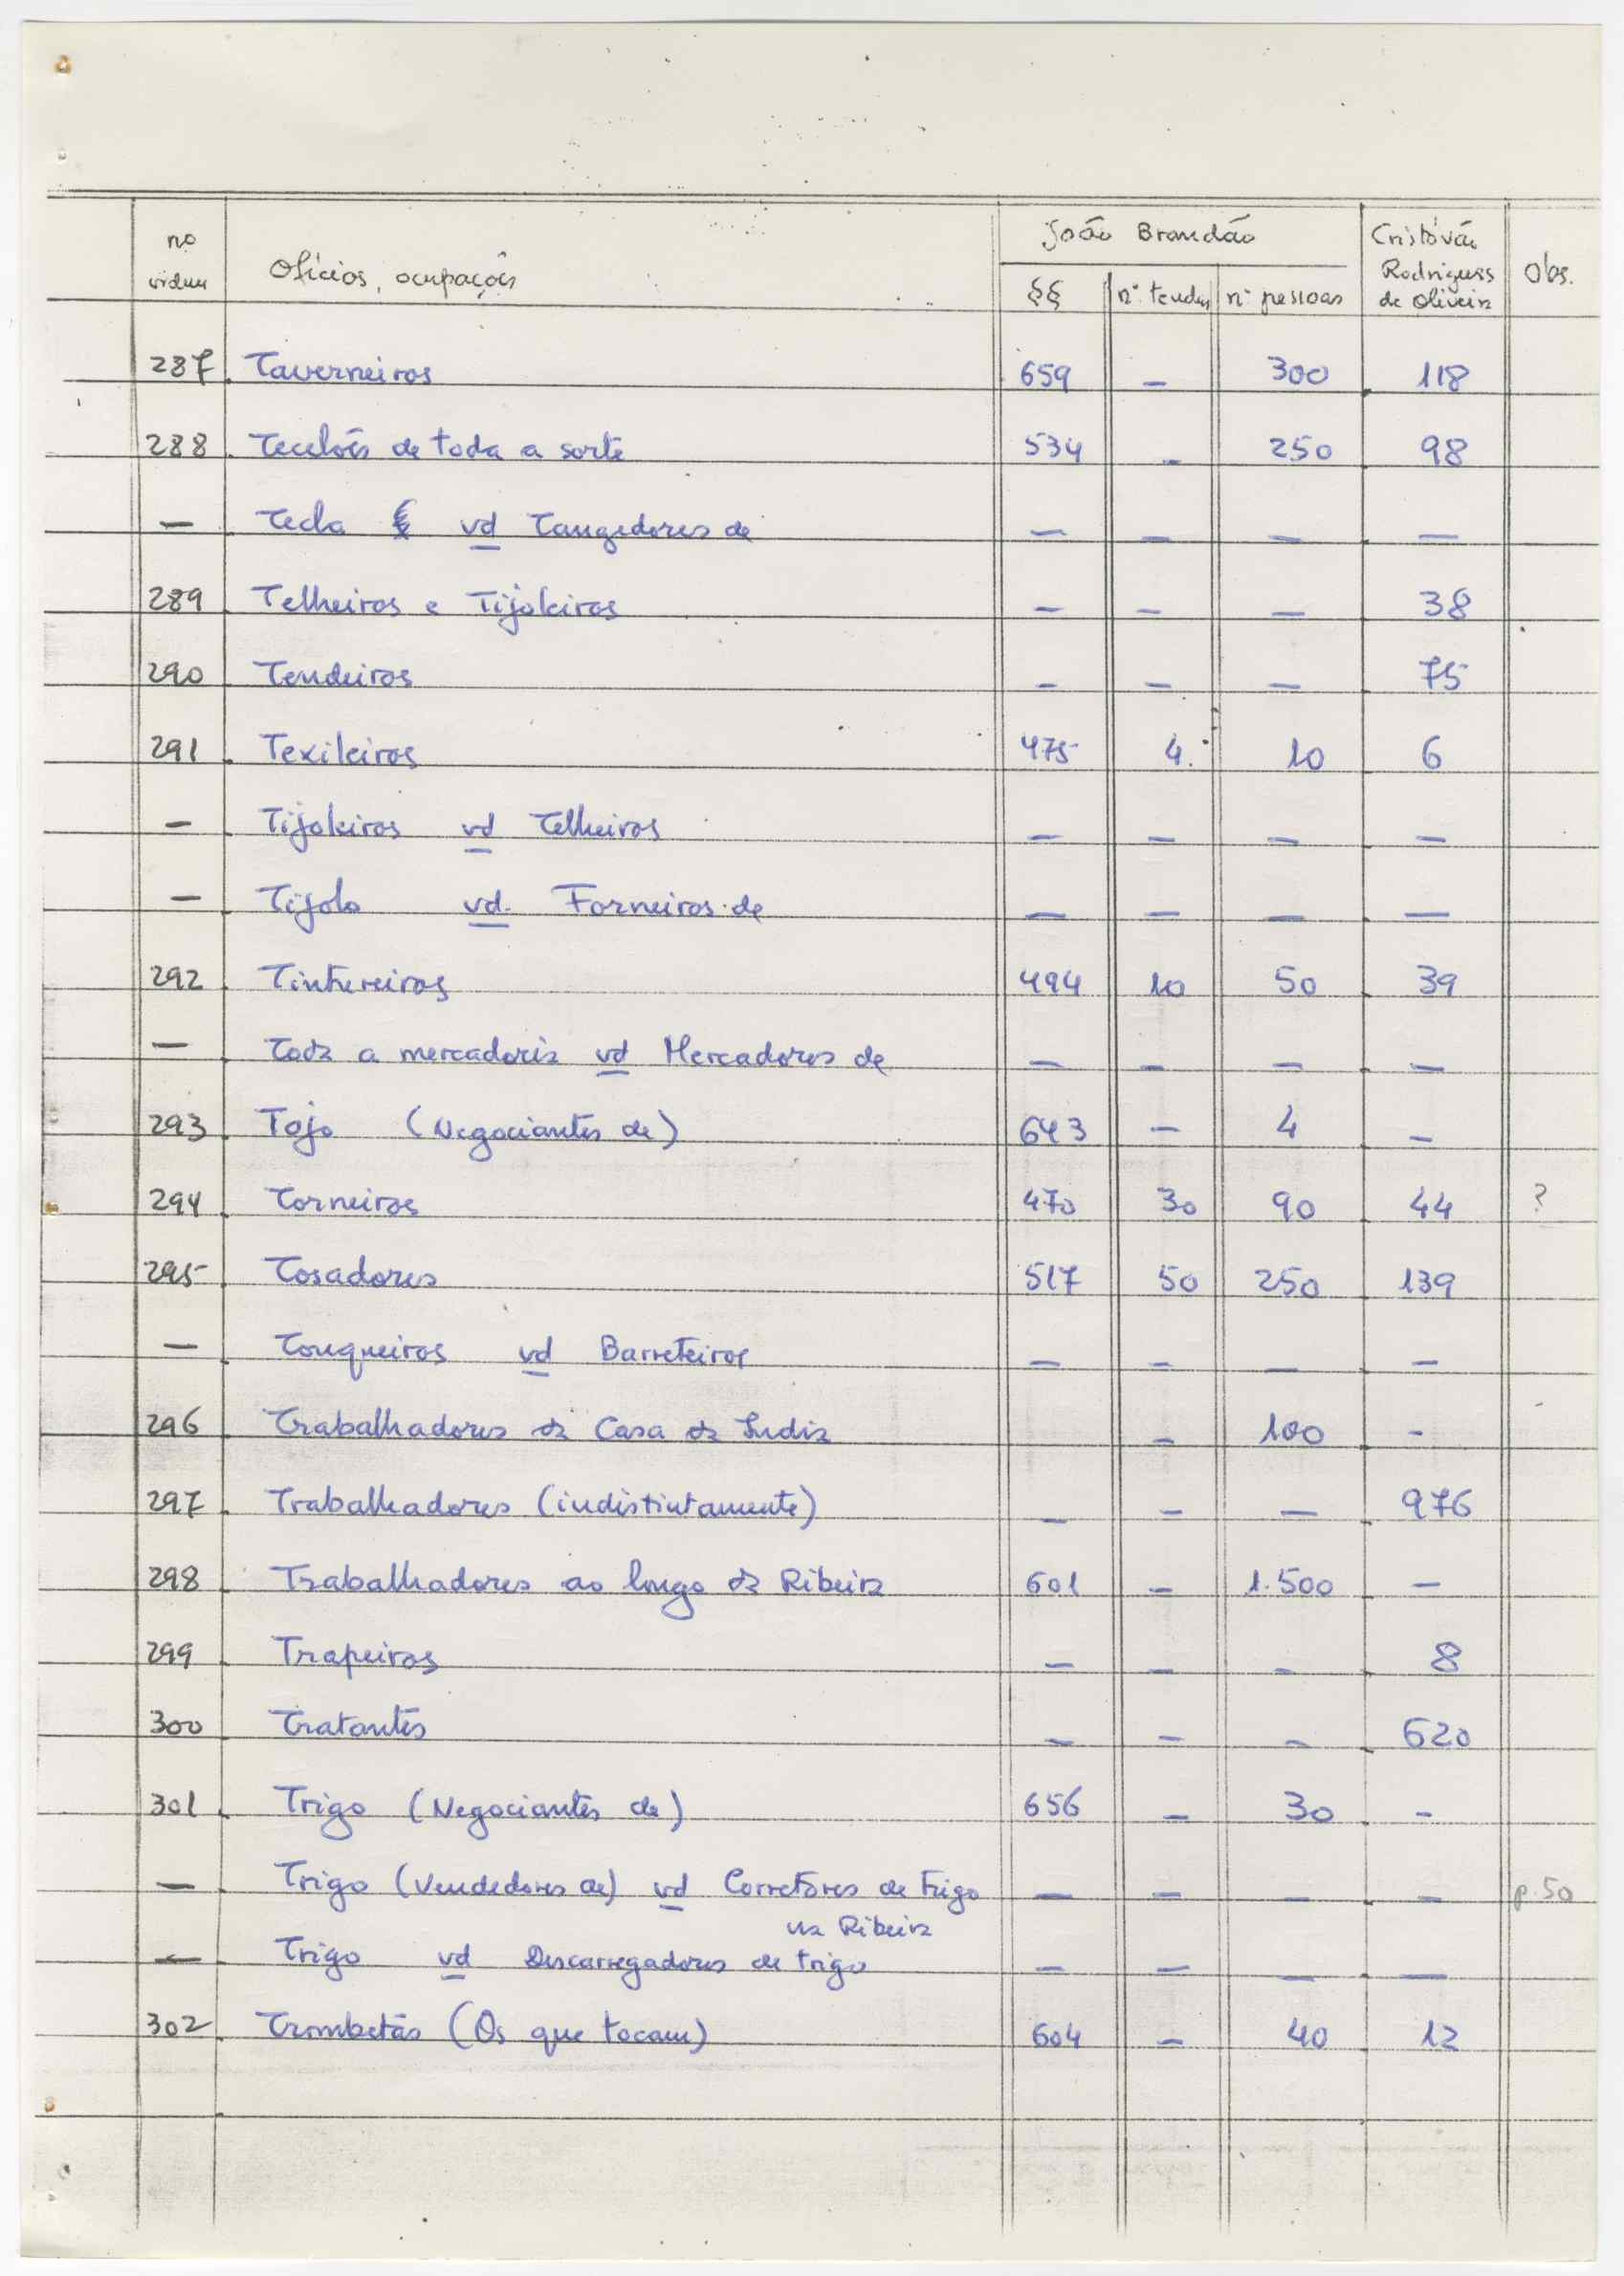 nº ordem Ofícios, ocupações João Brandão Cristóvão Rodrigues de Oliveira Obs.
§§ nº tendas nº pessoas
287 Taverneiros 659 — 300 118
288 Tecelões de toda a sorte 534 — 250 98
— Tecla vd Tangedores de — — — —
289 Telheiros e Tijoleiros — — — 38
290 Tendeiros — — — 75
291 Texileiros 475 4 10 6
— Tijoleiros vd Telheiros — — — —
— Tijolo vd. Forneiros de — — — —
292 Tintureiros 494 10 50 39
— Toda a mercadoria vd Mercadores de — — — —
293 Tojo (Negociantes de) 643 — 4 —
294 Torneiros 470 30 90 44 ?
295 Tosadores 517 50 250 139
— Touqueiros vd Barreteiros — — — —
296 Trabalhadores da Casa da Índia — 100 —
297 Trabalhadores (indistintamente) — — — 976
298 Trabalhadores ao longo da Ribeira 601 — 1.500 —
299 Trapeiros — — — 8
300 Tratantes — — — 620
301 Trigo (Negociantes de) 656 — 30 —
— Trigo (Vendedores de) vd Corretores de trigo — — — — p. 50
na Ribeira
— Trigo vd Descarregadores de trigo — — — —
302 Trombetas (Os que tocam) 604 — 40 12